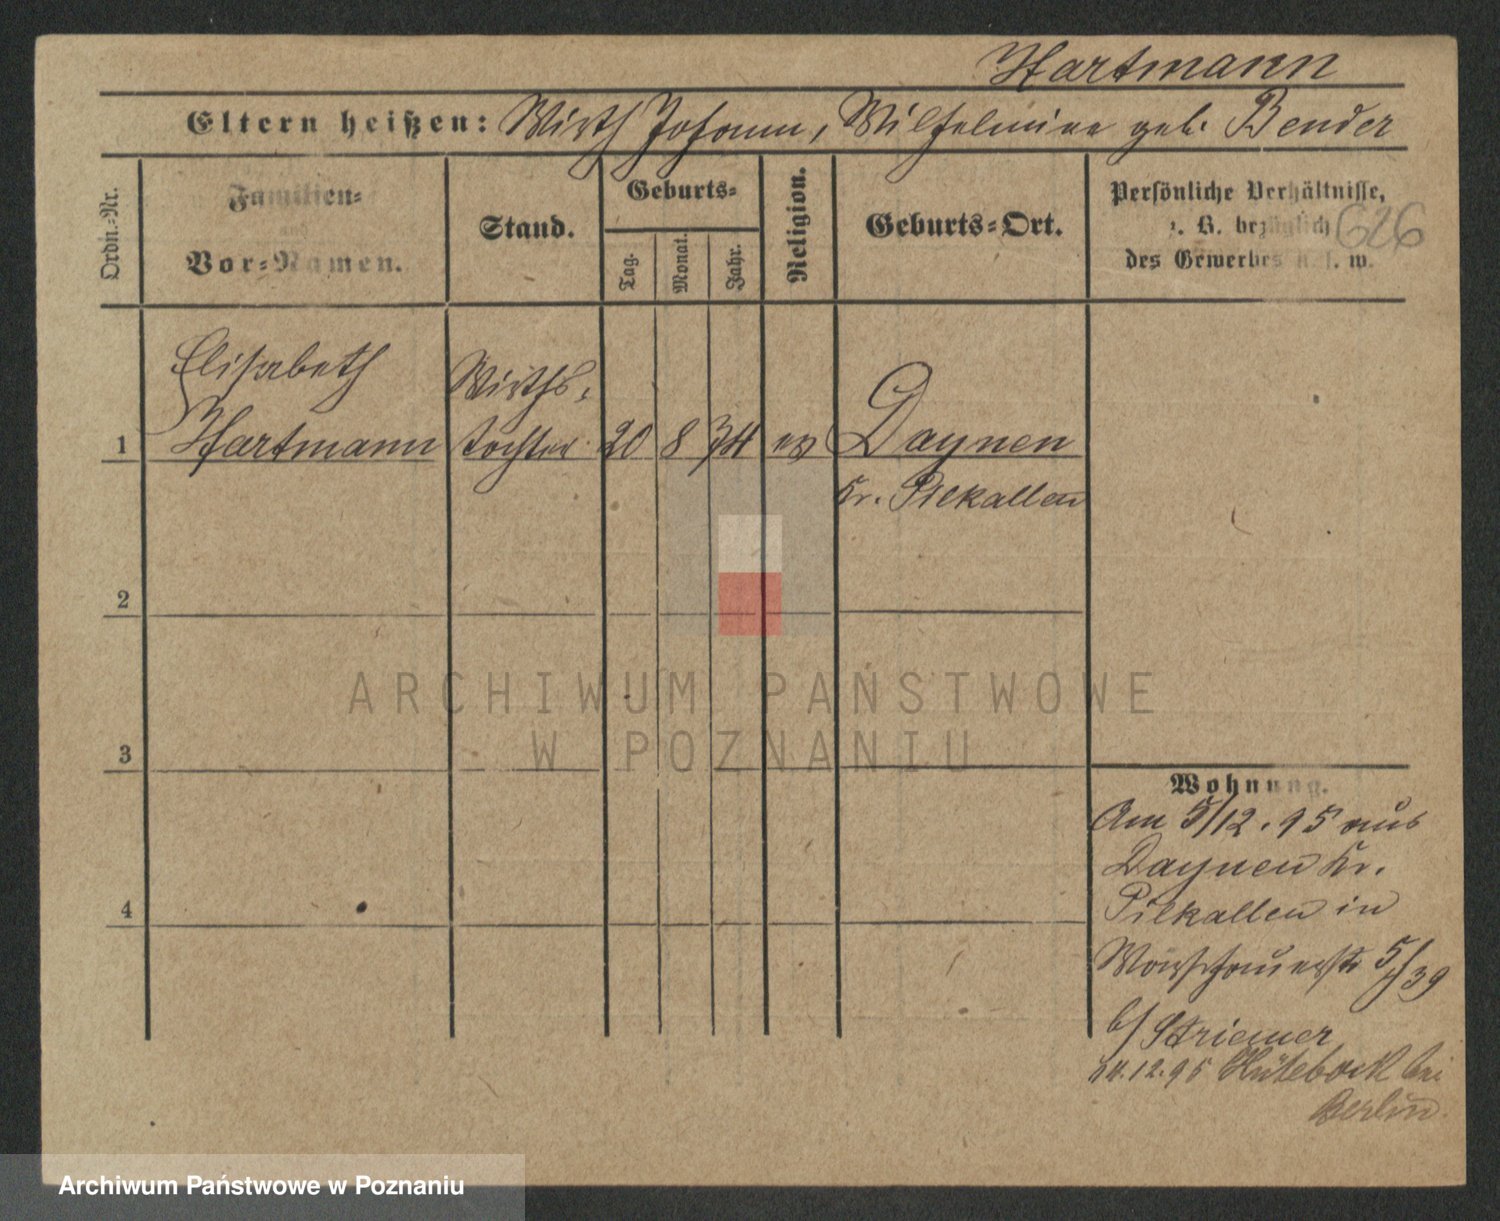 Hartmann
Eltern heißen: Wirth Johann, Wilhelmine geb. Bender
Ordn.-Nr.
Familien-
und
Vor-Namen.
Stand.
Geburts-
Tag.
Monat.
Jahr.
Religion.
Geburts-Ort.
Persönliche Verhältnisse,
z. B. bezüglich
des Gewerbes u. s. w.
626
Elisabeth
Wirths-
1 Hartmann tochter 20 8 74 ev Daynen
Kr. Pilkallen
2
3
4
Wohnung.
Am 5/12. 95 aus
Daynen Kr.
Pilkallen in
5/39
b/ Striemer
12.95 bei
Berlin.
ARCHIWUM PAŃSTWOWE
W POZNANIU
Archiwum Państwowe w Poznaniu